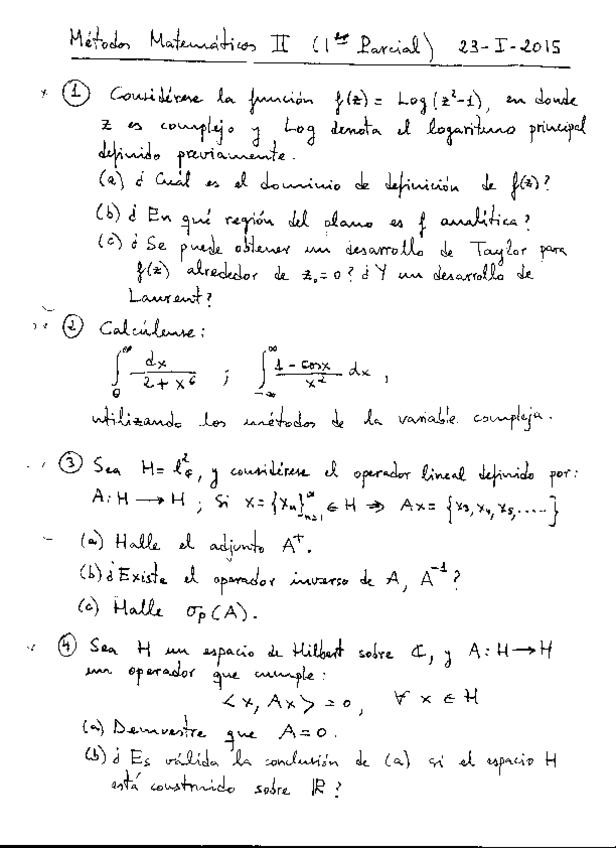 Métodos Matemáticos II (1er Parcial) 23-I-2015
① Considérese la función f(z) = Log(z²-1), en donde
z es complejo y Log denota el logaritmo principal
definido previamente.
(a) ¿Cuál es el dominio de definición de f(z)?
(b) ¿En qué región del plano es f analítica?
(c) ¿Se puede obtener un desarrollo de Taylor para
f(z) alrededor de z₀=0? ¿Y un desarrollo de
Laurent?
② Calcúlense:
∫₀^∞ dx/(2+x⁶) ; ∫_{-∞}^∞ (1-cosx)/x² dx ,
utilizando los métodos de la variable compleja.
③ Sea H = l²_ℂ, y considérese el operador lineal definido por:
A: H → H ; Si x = {xₙ}^∞_{n=1} ∈ H ⇒ Ax = {x₃, x₄, x₅, .....}
(a) Halle el adjunto A⁺.
(b) ¿Existe el operador inverso de A, A⁻¹?
(c) Halle σp(A).
④ Sea H un espacio de Hilbert sobre ℂ, y A: H → H
un operador que cumple:
<x, Ax> = 0, ∀ x ∈ H
(a) Demuestre que A=0.
(b) ¿Es válida la conclusión de (a) si el espacio H
está construido sobre ℝ?